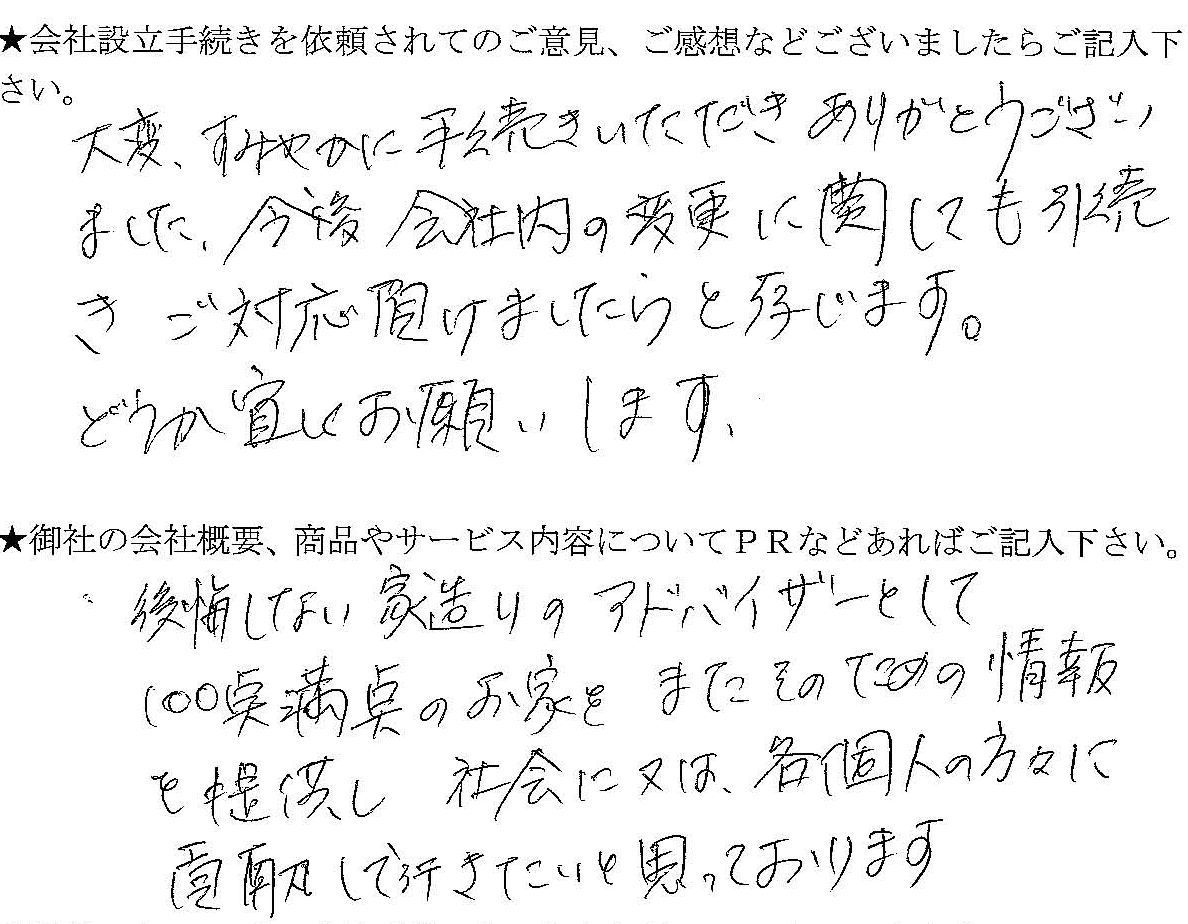 ★会社設立手続きを依頼されてのご意見、ご感想などございましたらご記入下
さい。
大変、すみやかに手続きいただきありがとうござい
ました、今後 会社内の変更に関しても引続
き ご対応頂けましたらと存じます。
どうか宜しくお願いします、
★御社の会社概要、商品やサービス内容についてＰＲなどあればご記入下さい。
後悔しない家造りのアドバイザーとして
100点満点のお家を またそのための情報
を提供し 社会に又は、各個人の方々に
貢献して行きたいと思っております